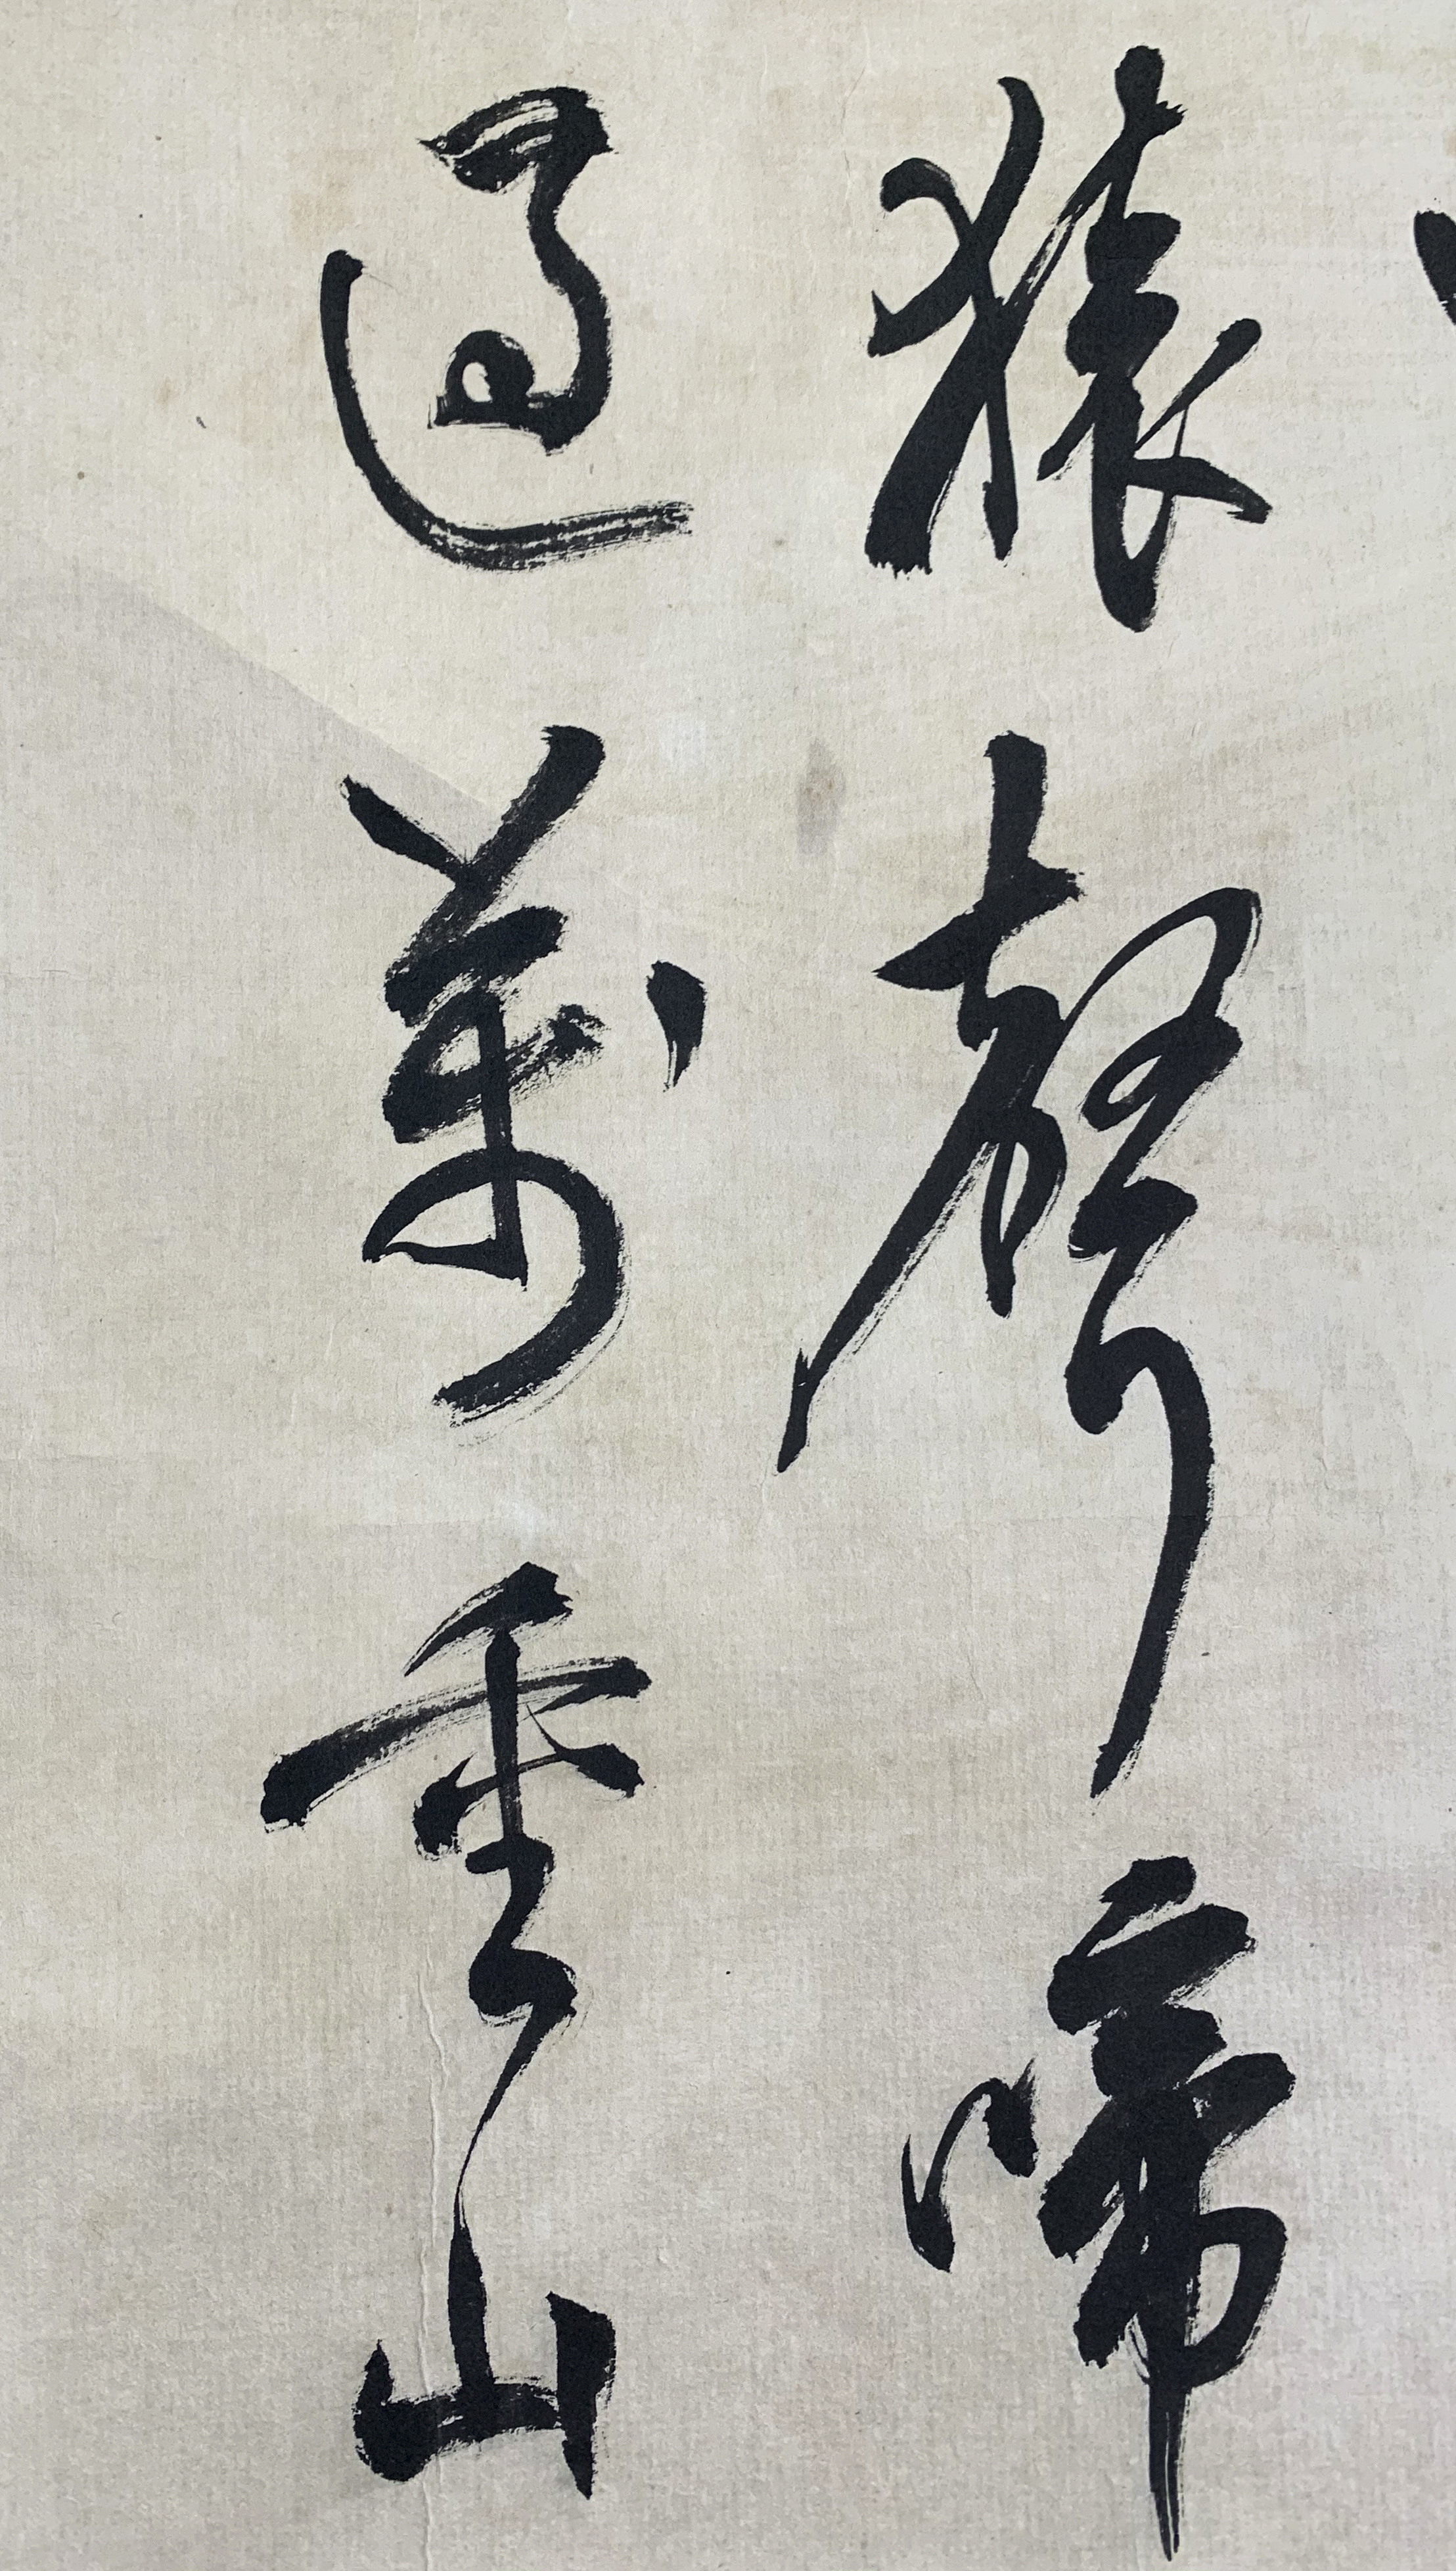 猿聲啼
過萬重山